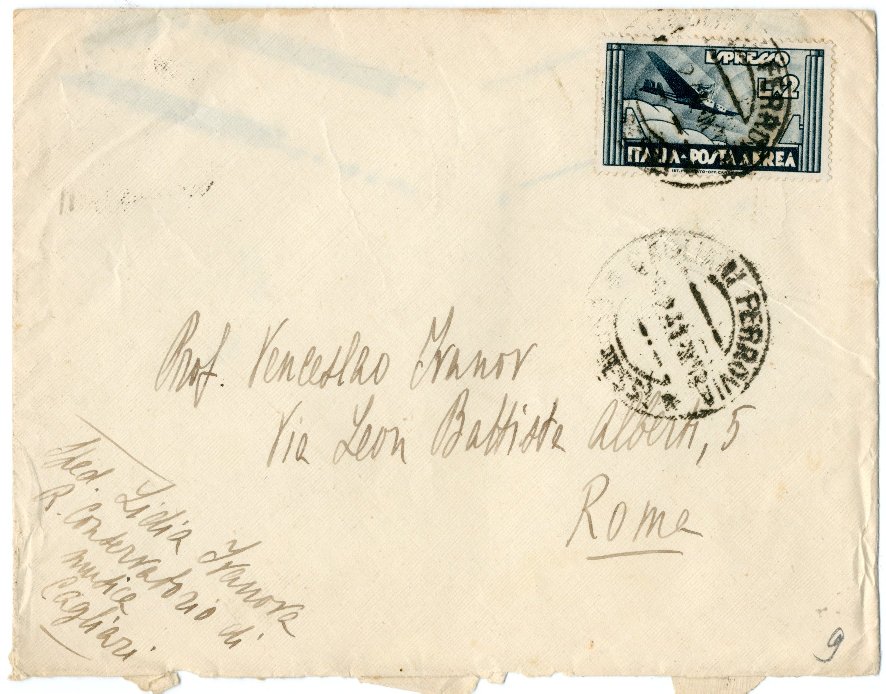 ESPRESSO
L.2
ITALIA-POSTA AEREA
FERROVIA
Prof. Venceslao Ivanov
Via Leon Battista Alberti, 5
Roma
Sped. Lidia Ivanova
R. Conservatorio di
musica
Cagliari
9